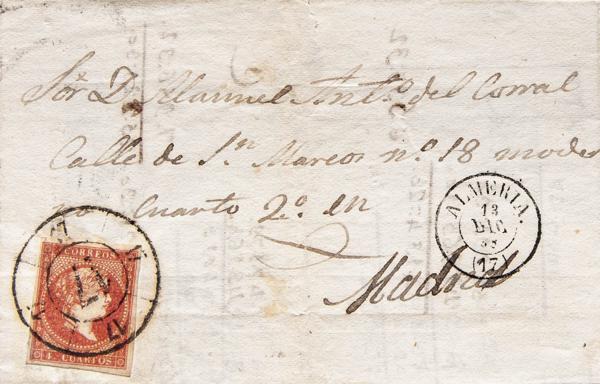 Sor. D. Manuel Anto. del Corral
Calle de Sn. Marcos no. 18 moder
no cuarto 2o. en
Madrid
ALMERIA.
13
DIC
(17)
CORREOS
17
4. CUARTOS